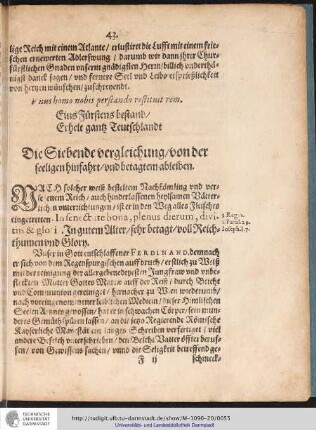 43.
lige Reich mit einem Atlante / erlustiret die Lufft mit einem frie-
schen ernewerten Adlerswung / darumb wir dann ihrer Chur-
fürstlichen Gnaden unserm gnädigsten Herrn / billich underthä-
nigst danck sagen / und fernere Seel und Leibs ersprießlichkeit
von hertzen wünschen /
unus homo nobis perstando restituit rem.
Eins Fürstens bestand /
Erhelt gantz Teutschlandt
Die Siebende vergleichung / von der
seeligen hinfahrt / und betagtem ableiben.
NACH solcher weiß bestelten Nachkömling und ver-
sehenem Reich / nach hinderlassenen heylsamen Vätter-
lichen underrichtungen / ist er in den Weg alles Fleisches
eingetretten. In senectute bona, plenus dierum, divi-
tiis & gloria. In gutem Alter / sehr betagt / voll Reich-
thumen und Glory.
3. Reg. 2.
1. Paral. 29.
Unser in Gott entschlaffener FERDINAND, demnach
er sich von dem Regenspurgischen auffbruch / erstlich zu
mit der reinigung der allergebenedeytesten Jungfraw und unbe-
fleckten Mutter Gottes Mariae auff der Reiß / durch Beicht
und Communion gereiniget / hernacher zu Wien widerumb /
nach voreingenommener leiblichen Medicin / dieser Himlischen
Seelen Artzney genossen / hat er in schwachem Cörper / sein mun-
deres Gemüth spüren lassen / an die jetzo Regierende Römische
Kayserliche Mayestät ein langes Schreiben verfertiget / viel
andere Befelch underschrieben / den Beicht Vatter öffter beruf-
sen / von Gewissens sachen / unnd die Seligkeit betreffend ge-
F ij
schmeck-
TECHNISCHE
UNIVERSITÄT
DARMSTADT
http://tudigit.ulb.tu-darmstadt.de/show/M-1090-20/0053
Universitäts- und Landesbibliothek Darmstadt